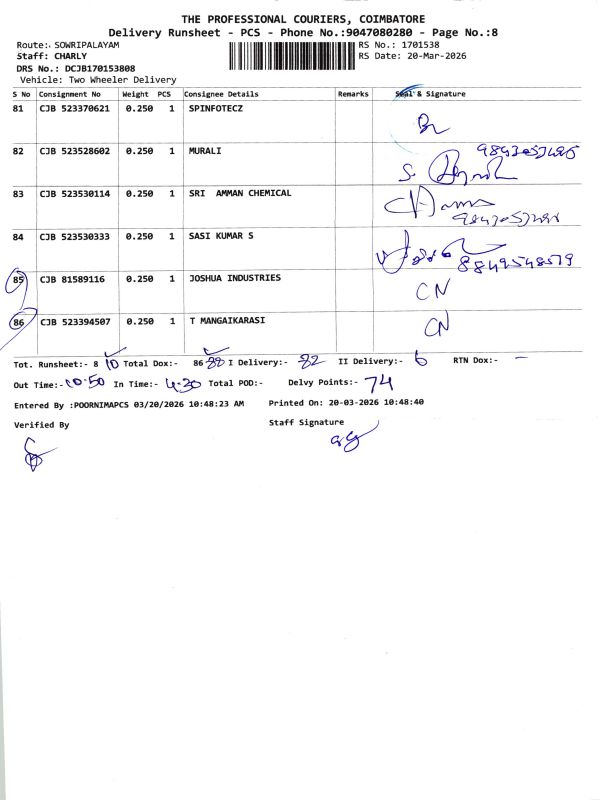 THE PROFESSIONAL COURIERS, COIMBATORE
Delivery Runsheet - PCS - Phone No.:9047080280 - Page No.:8
Route: SOWRIPALAYAM RS No.: 1701538
Staff: CHARLY RS Date: 20-Mar-2026
DRS No.: DCJB170153808
Vehicle: Two Wheeler Delivery
S No Consignment No Weight PCS Consignee Details Remarks Seal & Signature
81 CJB 523370621 0.250 1 SPINFOTECZ
82 CJB 523528602 0.250 1 MURALI
83 CJB 523530114 0.250 1 SRI AMMAN CHEMICAL
84 CJB 523530333 0.250 1 SASI KUMAR S 8849548579
85 CJB 81589116 0.250 1 JOSHUA INDUSTRIES CN
86 CJB 523394507 0.250 1 T MANGAIKARASI CN
Tot. Runsheet:- 8 10 Total Dox:- 86 88 I Delivery:- 82 II Delivery:- 6 RTN Dox:- —
Out Time:- 10.50 In Time:- 4.30 Total POD:- Delvy Points:- 74
Entered By :POORNIMAPCS 03/20/2026 10:48:23 AM Printed On: 20-03-2026 10:48:40
Verified By Staff Signature